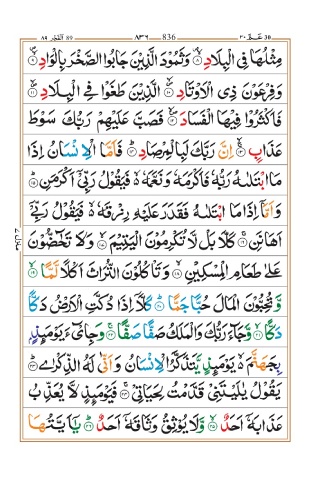 ٨٩ اَلْفَجْر 89 ٨٣٦ 836 ٣٠ عَمَّ 30
مِثْلُهَا فِى الْبِلَادِ ۞ وَثَمُوْدَ الَّذِيْنَ جَابُوا الصَّخْرَ بِالْوَادِ ۞
وَفِرْعَوْنَ ذِى الْاَوْتَادِ ۞ الَّذِيْنَ طَغَوْا فِى الْبِلَادِ ۞
فَاَكْثَرُوْا فِيْهَا الْفَسَادَ ۞ فَصَبَّ عَلَيْهِمْ رَبُّكَ سَوْطَ
عَذَابٍ ۞ اِنَّ رَبَّكَ لَبِالْمِرْصَادِ ۞ فَاَمَّا الْاِنْسَانُ اِذَا
مَا ابْتَلٰىهُ رَبُّهٗ فَاَكْرَمَهٗ وَنَعَّمَهٗ فَيَقُوْلُ رَبِّىْٓ اَكْرَمَنِ ۞
وَاَمَّآ اِذَا مَا ابْتَلٰىهُ فَقَدَرَ عَلَيْهِ رِزْقَهٗ فَيَقُوْلُ رَبِّىْٓ
اَهَانَنِ ۞ كَلَّا بَلْ لَّا تُكْرِمُوْنَ الْيَتِيْمَ ۞ وَلَا تَحٰٓضُّوْنَ
عَلٰى طَعَامِ الْمِسْكِيْنِ ۞ وَتَاْكُلُوْنَ التُّرَاثَ اَكْلًا لَّمًّا ۞
وَّتُحِبُّوْنَ الْمَالَ حُبًّا جَمًّا ۞ كَلَّآ اِذَا دُكَّتِ الْاَرْضُ دَكًّا
دَكًّا ۞ وَّجَآءَ رَبُّكَ وَالْمَلَكُ صَفًّا صَفًّا ۞ وَجِاىْٓءَ يَوْمَىِٕذٍۭ
بِجَهَنَّمَ يَوْمَىِٕذٍ يَّتَذَكَّرُ الْاِنْسَانُ وَاَنّٰى لَهُ الذِّكْرٰى ۞
يَقُوْلُ يٰلَيْتَنِىْ قَدَّمْتُ لِحَيَاتِىْ ۞ فَيَوْمَىِٕذٍ لَّا يُعَذِّبُ
عَذَابَهٗٓ اَحَدٌ ۞ وَّلَا يُوْثِقُ وَثَاقَهٗٓ اَحَدٌ ۞ يٰٓاَيَّتُهَا